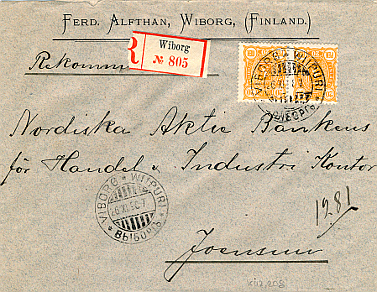 FERD. ALFTHAN, WIBORG, (FINLAND.)
R Wiborg
№ 805
Rekomm
VIBORG * WIIPURI
ВЫБОРГЪ
Nordiska Aktie Bankens
för Handel & Industri Kontor
VIBORG * WIIPURI
26.XI.90.7
ВЫБОРГЪ
1281
Joensuu